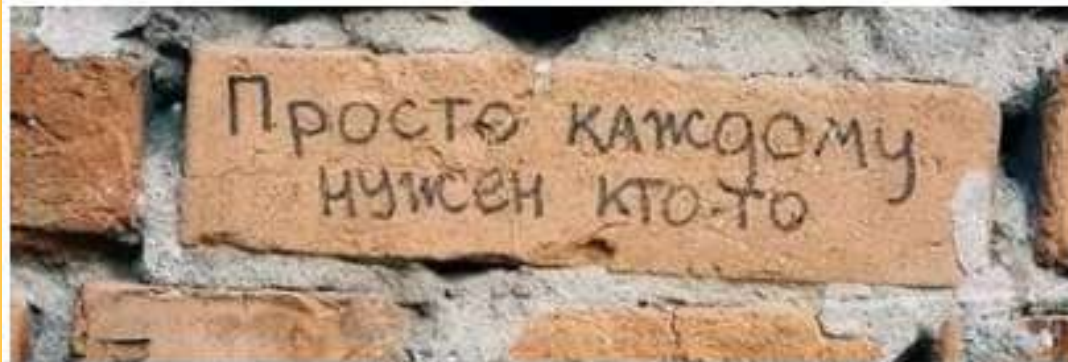 Просто каждому
нужен кто-то